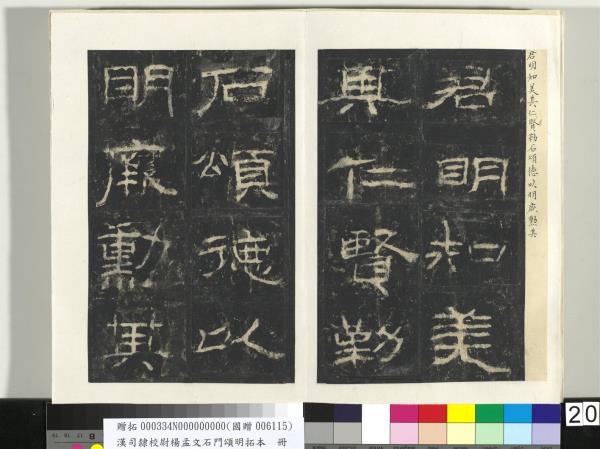 君明知美其仁賢勒石頌德以明厥勲其
君明知美
其仁賢勒
石頌德以
明厥勳其
贈拓 000334N000000000(國贈 006115)
漢司隸校尉楊孟文石門頌明拓本 冊
20